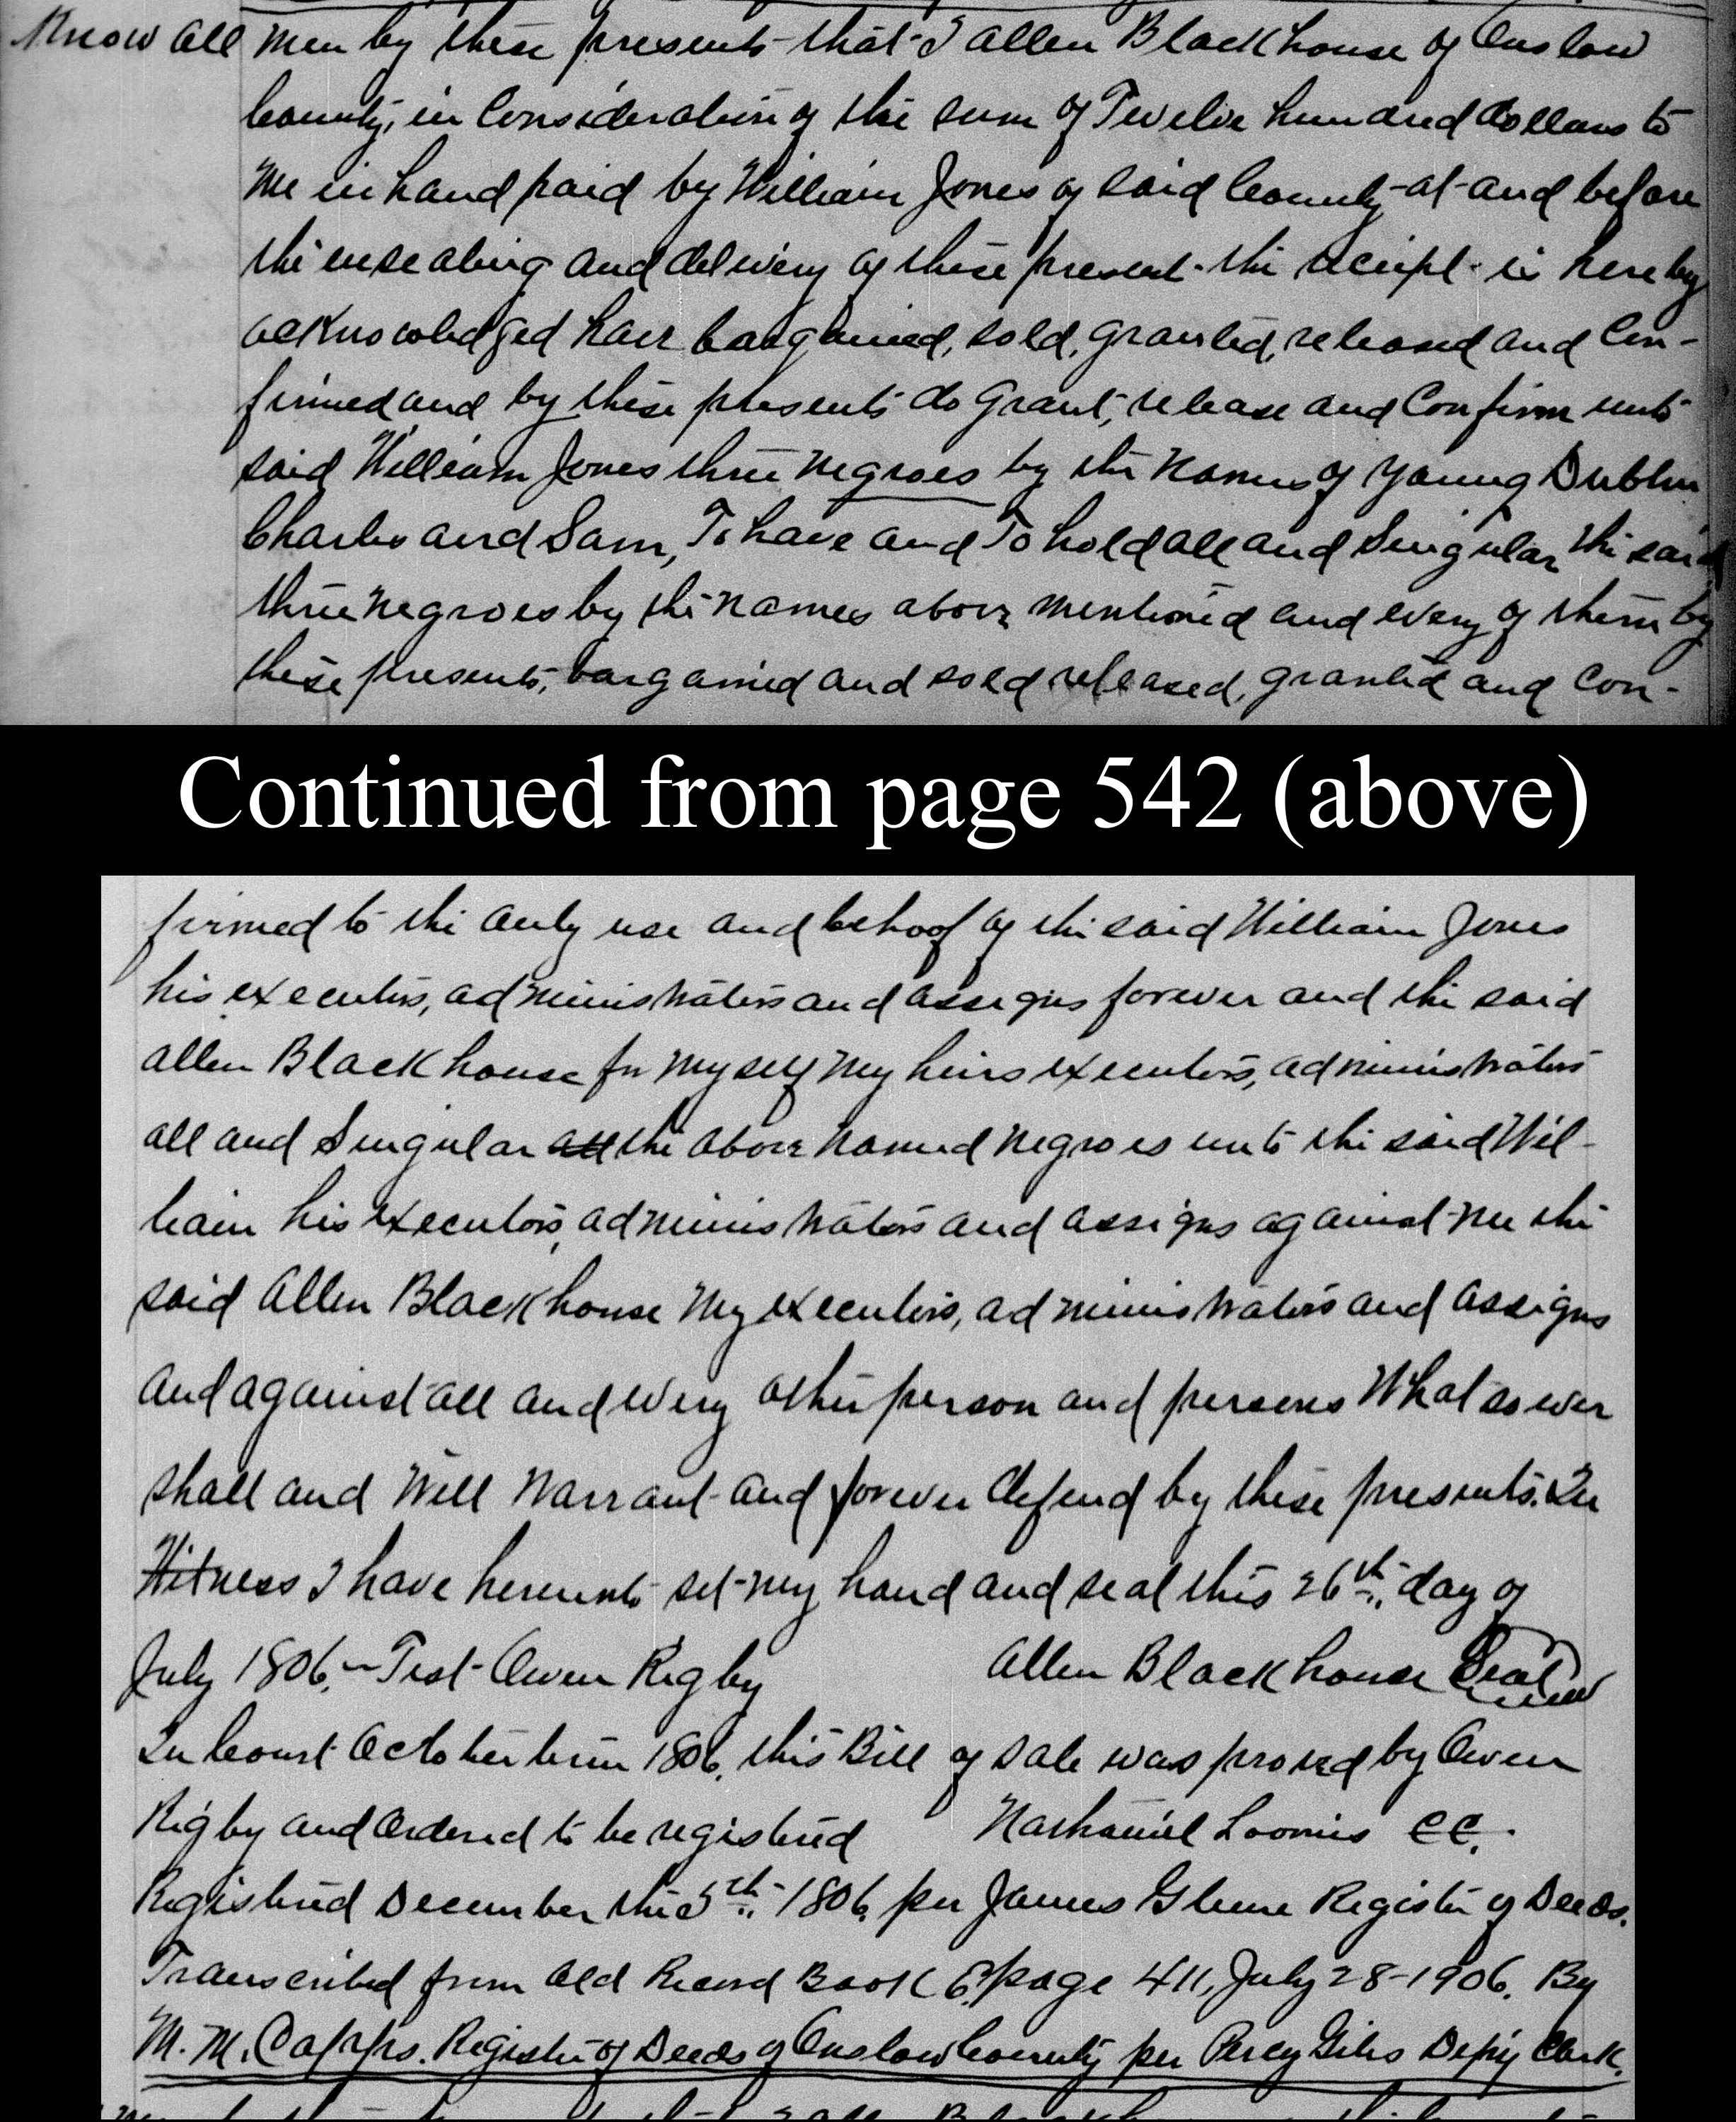 Know all men by these presents that I Allen Blackhouse of Onslow
County, in Consideration of the sum of Twelve hundred dollars to
me in hand paid by William Jones of said County at and before
the ensealing and delivery of these present the receipt is hereby
acknowledged have bargained, sold, granted, released and Con-
firmed and by these presents do grant, release and Confirm unto
said William Jones three negroes by the names of Young Dublin
Charles and Sam, To have and To hold all and Singular the said
three negroes by the names above mentioned and every of them by
these presents, bargained and sold released, granted and con-
Continued from page 542 (above)
firmed to the only use and behoof of the said William Jones
his executors, administrators and assigns forever and the said
Allen Blackhouse for myself my heirs executors, administrators
all and Singular all the above named negroes unto the said Wil-
liam his executors, administrators and assigns against me the
said Allen Blackhouse my executors, administrators and assigns
and against all and every other person and persons Whatsoever
shall and Will Warrant and forever defend by these presents. In
Witness I have hereunto set my hand and seal this 26th day of
July 1806. Test Owen Rigby Allen Blackhouse Seal
In Court October term 1806, this Bill of sale was proved by Owen
Rigby and Ordered to be registered Nathaniel Loomis CC.
Registered December the 5th 1806, per James Glenn Register of Deeds.
Transcribed from Old Record Book 6, page 411, July 28-1906. By
M. M. Capps. Register of Deeds of Onslow County per Percy Giles Depy Clerk.